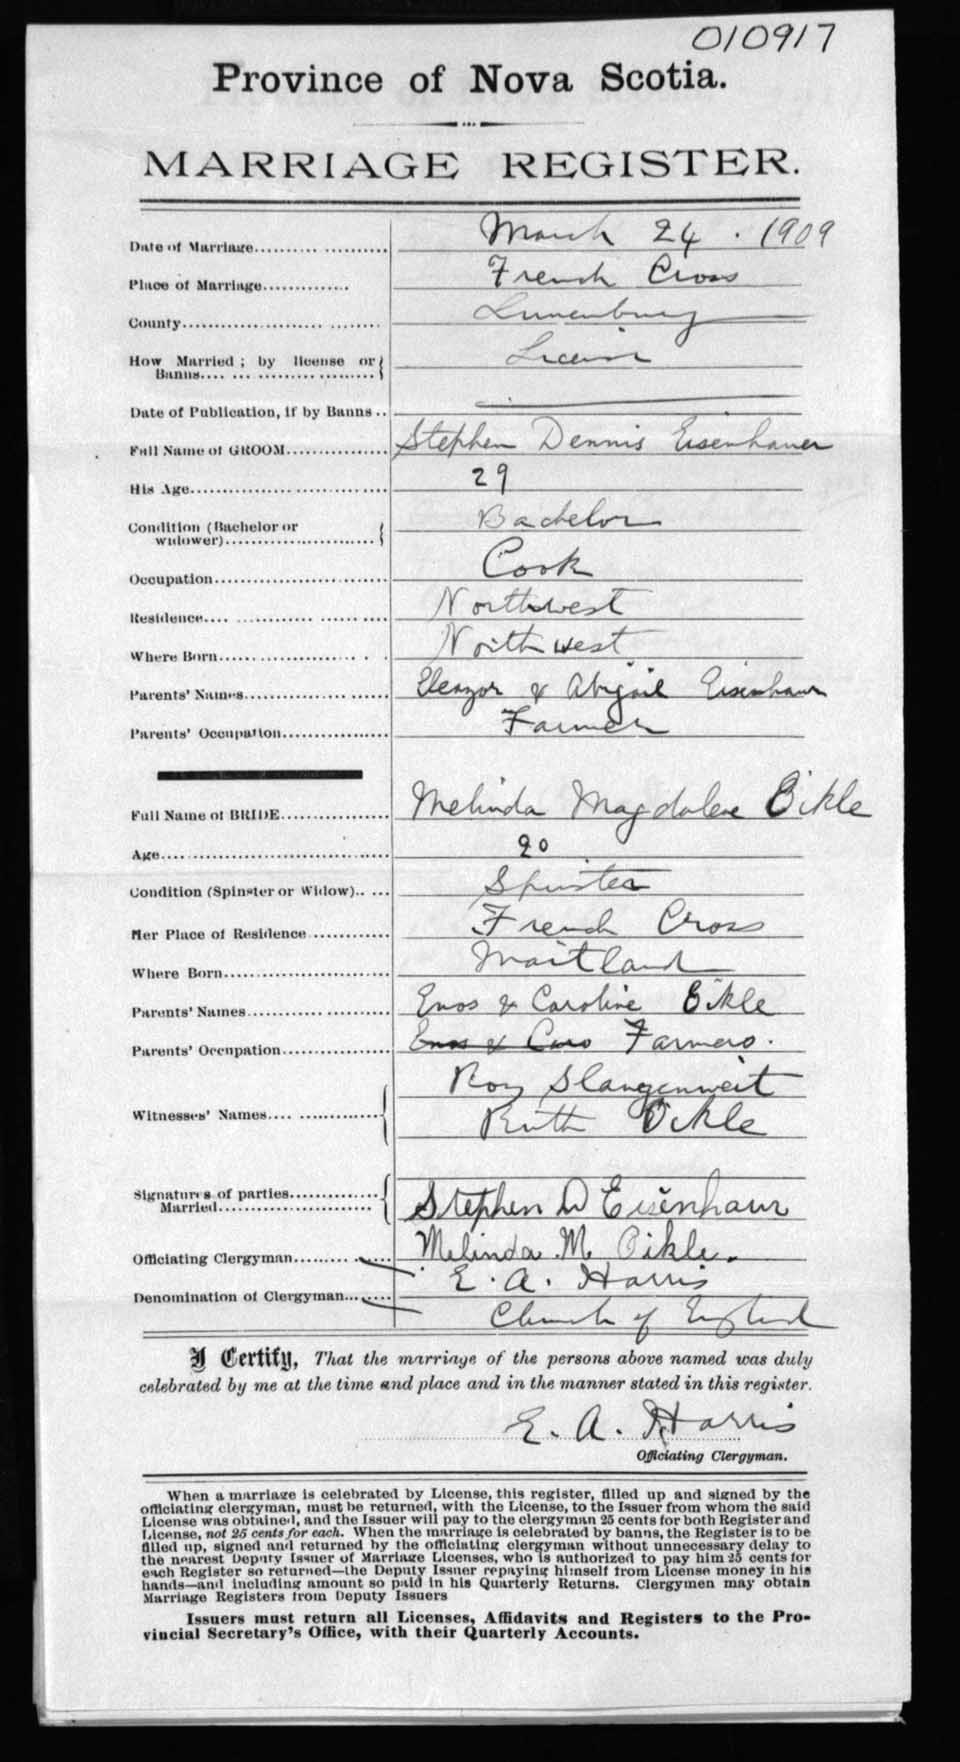 010917
Province of Nova Scotia.
MARRIAGE REGISTER.
Date of Marriage March 24 . 1909
Place of Marriage French Cross
County Lunenburg
How Married ; by license or License
Banns
Date of Publication, if by Banns
Full Name of GROOM Stephen Dennis Eisenhauer
His Age 29
Condition (Bachelor or Bachelor
widower)
Occupation Cook
Residence Northwest
Where Born Northwest
Parents' Names Eleazor & Abigail Eisenhaur
Parents' Occupation Farmer
Full Name of BRIDE Melinda Magdalene Oikle
Age 20
Condition (Spinster or Widow) Spinster
Her Place of Residence French Cross
Where Born Maitland
Parents' Names Enos & Caroline Oikle
Parents' Occupation Enos & Caro Farmers.
Roy Slangenweit
Witnesses' Names Ruth Oikle
Signatures of parties
Married Stephen D Eisenhaur
Melinda M Oikle.
Officiating Clergyman E. A. Harris
Denomination of Clergyman Church of England
I Certify, That the marriage of the persons above named was duly
celebrated by me at the time and place and in the manner stated in this register.
E. A. Harris
Officiating Clergyman.
When a marriage is celebrated by License, this register, filled up and signed by the
officiating clergyman, must be returned, with the License, to the Issuer from whom the said
License was obtained, and the Issuer will pay to the clergyman 25 cents for both Register and
License, not 25 cents for each. When the marriage is celebrated by banns, the Register is to be
filled up, signed and returned by the officiating clergyman without unnecessary delay to
the nearest Deputy Issuer of Marriage Licenses, who is authorized to pay him 25 cents for
each Register so returned—the Deputy Issuer repaying himself from License money in his
hands—and including amount so paid in his Quarterly Returns. Clergymen may obtain
Marriage Registers from Deputy Issuers
Issuers must return all Licenses, Affidavits and Registers to the Pro-
vincial Secretary's Office, with their Quarterly Accounts.